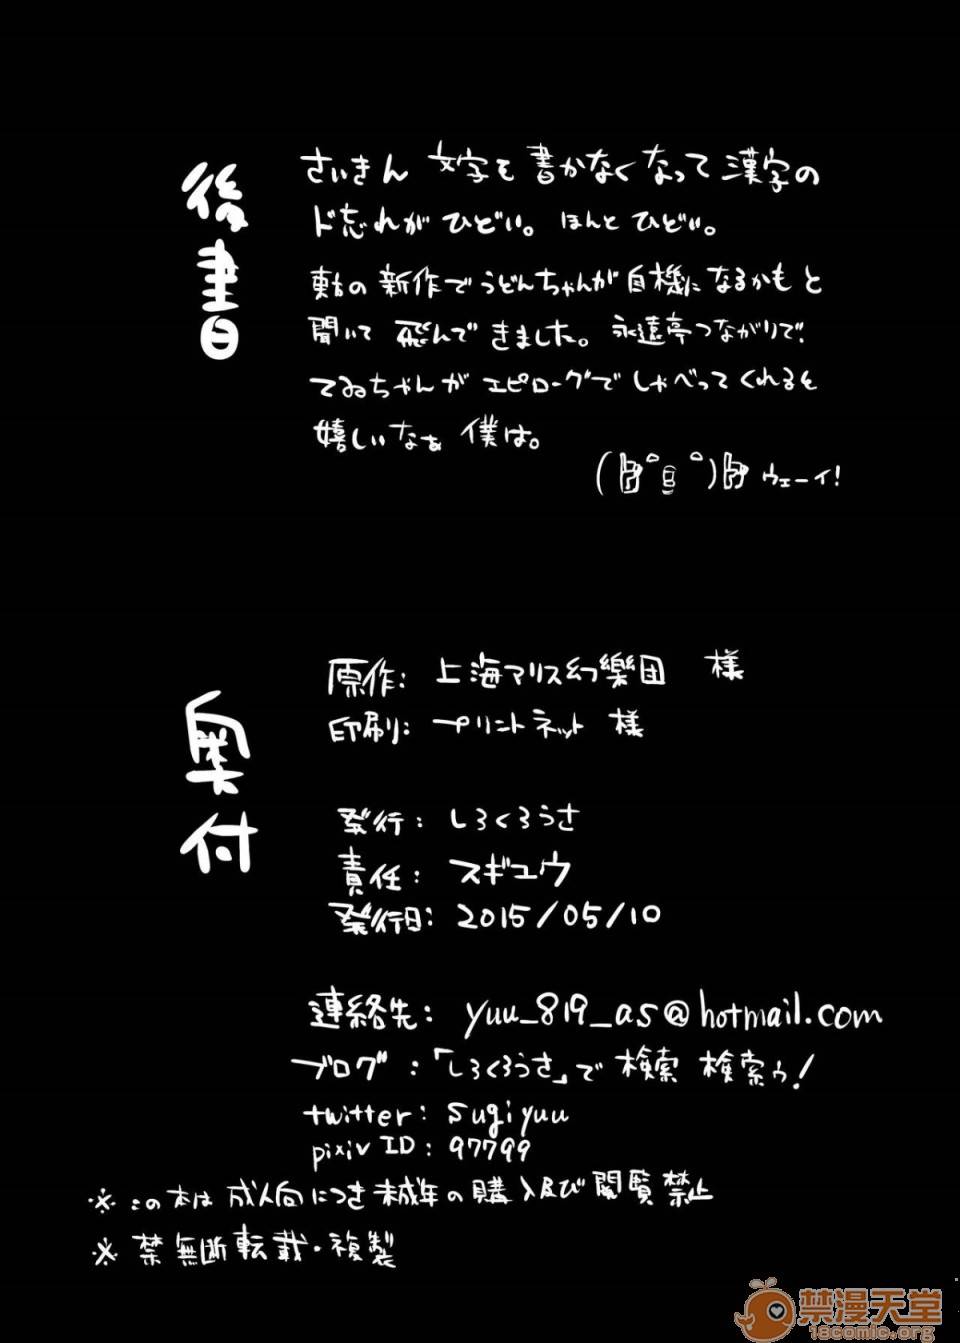 後書
さいきん 文字を書かなくなって漢字の
ド忘れがひどい。ほんとひどい。
東方の新作でうどんちゃんが自機になるかもと
聞いて飛んできました。永遠亭つながりで、
てゐちゃんがエピローグでしゃべってくれると
嬉しいなぁ僕は。
ウェーイ!
奥付
原作: 上海アリス幻樂団 様
印刷: プリントネット 様
発行: しろくろうさ
責任: スギユウ
発行日: 2015/05/10
連絡先: yuu_819_as@hotmail.com
ブログ:「しろくろうさ」で検索 検索ゥ!
twitter: sugiyuu
pixiv ID: 97799
※この本は成人向につき未成年の購入及び閲覧禁止
※禁無断転載・複製
禁漫天堂
18comic.org